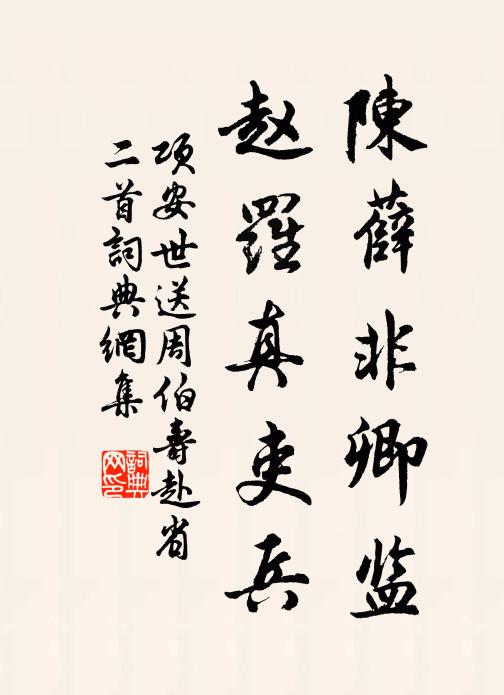 陳薛非卿监
赵羅真吏兵
项安世送周伯壽赴省
二首詞典網集
詞典网印